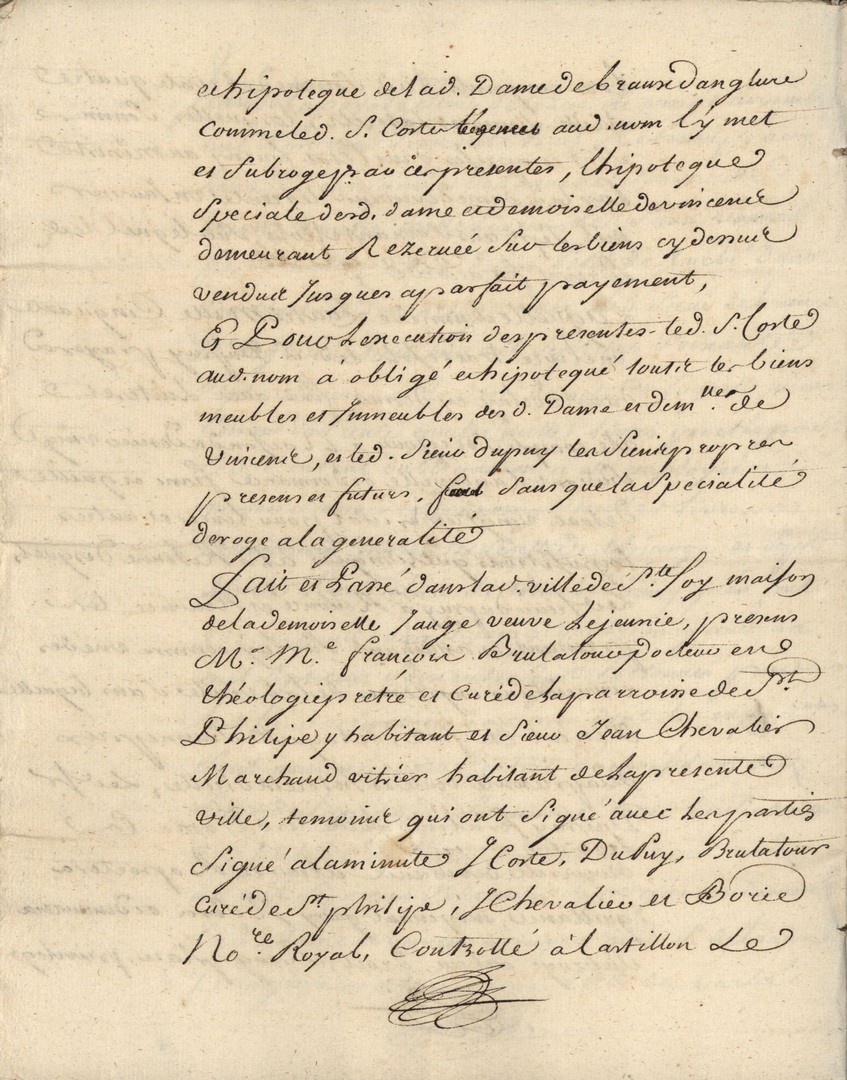 et hipoteque de lad. Dame de braux danglure
comme led. S. Corte aud. nom l'y met
et subroge par ces presentes, l'hipoteque
speciale desd. dame et demoiselle de vincens
demeurant Rezervée sur les biens cy dessus
vendus Jusques a parfait payement,
Et Pour L'execution des presentes led. S. Corte
aud. nom à obligé et hipotequé toutes les biens
meubles et Jmmeubles desd. Dame et dem.lles de
Vincens, et led. Sieur dupuy les siens propres
presens et futurs, sans que la specialité
deroge a la generalité
Fait et Passé dans lad. ville de Ste. foy maison
de la demoiselle Jauge veuve Lejeunie, presens
Mr. Me. françois Brulatour Docteur en
théologie pretre et Curé de la parroisse de St.
Philipe y habitant et Sieur Jean Chevalier
Marchand vitrier habitant de la presente
ville, temoins qui ont signé avec Les parties
Signé a la minute J Corte, DuPuy, Brulatour
Curé de St. philipe, J Chevalier et Borie
No.re Royal, Controllé à Castillon Le